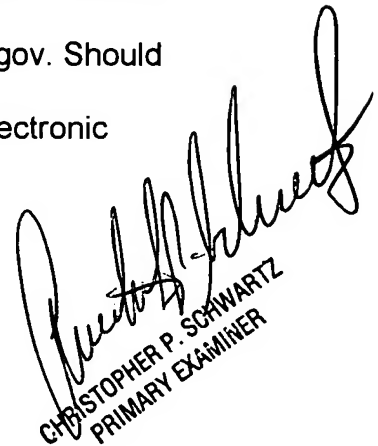 gov. Should
ectronic
CHRISTOPHER P. SCHWARTZ
PRIMARY EXAMINER